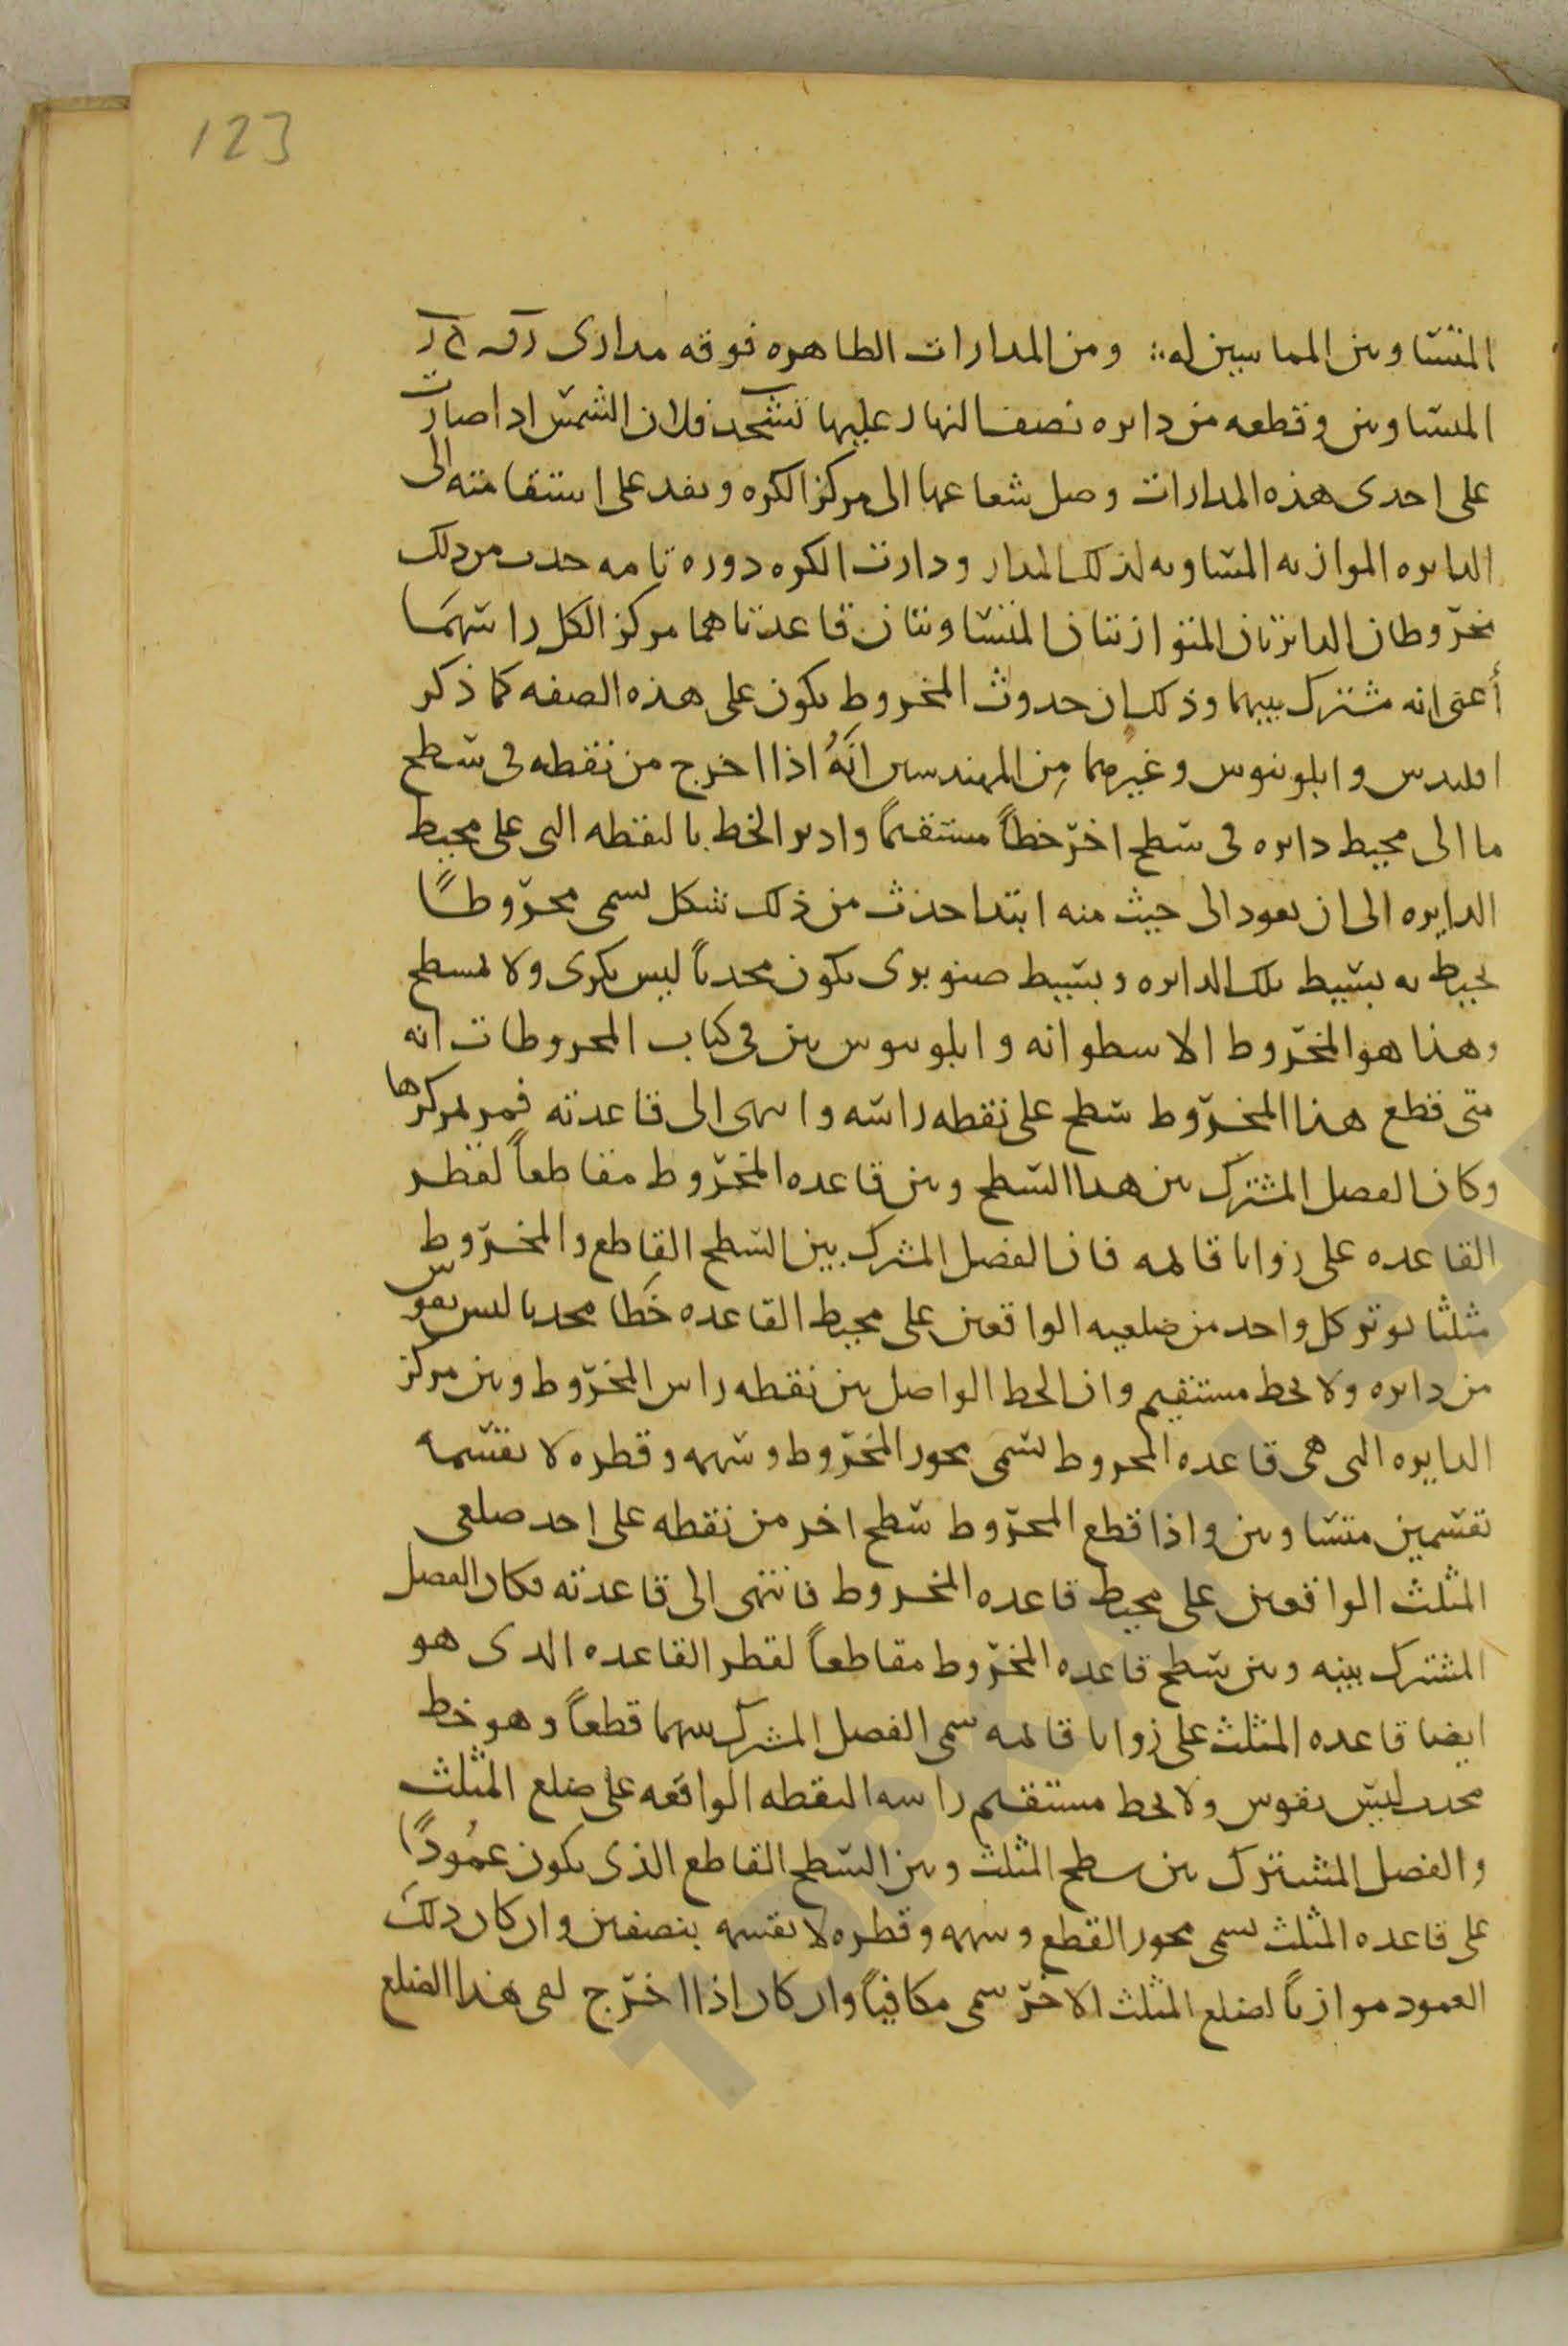 123
المتساويين المماسين له ؞ ومن المدارات الظاهره فوقه مدارى
المتساويين وقطعه من دايره نصف النهار عليها فلان الشمس اذا صارت
على احدى هذه المدارات وصل شعاعها الى مركز الكره ونفد على استقامته الى
الدايره الموازيه المساويه لذلك المدار ودارت الكره دوره تامه حدث من ذلك
مخرّوطان الدايرتان المتوازيتان المتساويتان قاعدتاهما مركز الكل راسهما
أعنى انه مشترك بينهما وذلك ان حدوث المخروط يكون على هذه الصفه كما ذكر
اقليدس وابلونيوس وغيرهما مِن المهندسين انَهُ اذا اخرج من نقطه فى سطح
ما الى محيط دايره فى سطح اخرَ خطاً مستقيماً وادير الخط بالنقطه التى على محيط
الدايره الى ان يعود الى حيث منه ابتدا حدث من ذلك شكل يسمى مخرّوطاً
يحيط به بسيط تلك الدايره وبسيط صنوبرى يكون محدباً ليس بكرى ولا بمسطح
وهذا هو المخرّوط الاسطوانه وابلونيوس بين فى كتاب المخروطات انه
متى قطع هذا المخرّوط سطح على نقطه راسه وانتهى الى قاعدته فمر بمركزها
وكان الفصل المشترك بين هذا السطح وبين قاعده المخرّوط مقاطعاً لقطر
القاعده على زوايا قايمه فان الفصل المشترك بين السطح القاطع والمخرّوط
مثلثا يوتر كل واحد من ضلعيه الواقعين على محيط القاعده خَطا محدبا ليس بقوس
من دايره ولا بخط مستقيم وان الخط الواصل بين نقطه راس المخرّوط وبين مركز
الدايره التى هى قاعده المخروط يسمى محور المخرّوط وسهمه وقطره لا يقسمه
بقسمين متساويين واذا قطع المخرّوط سطح اخر من نقطه على احد ضلعى
المثلث الواقعين على محيط قاعده المخروط فانتهى الى قاعدته فكان الفصل
المشترك بينه وبين سطح قاعده المخرّوط مقاطعاً لقطر القاعده الذى هو
ايضا قاعده المثلث على زوايا قايمه سمى الفصل المشترك بينهما قطعاً وهو خط
محدب ليس بقوس ولا بخط مستقيم راسه النقطه الواقعه على ضلع المثلث
والفصل المشترك بين سطح المثلث وبين السطح القاطع الذى يكون عمُوداً
على قاعده المثلث يسمى محور القطع وسهمه وقطره لا يقسمه بنصفين وان كان ذلك
العمود موازياً لضلع المثلث الاخرَ سمى مكافياً وان كان اذا اخرَج لقى هذا الضلع